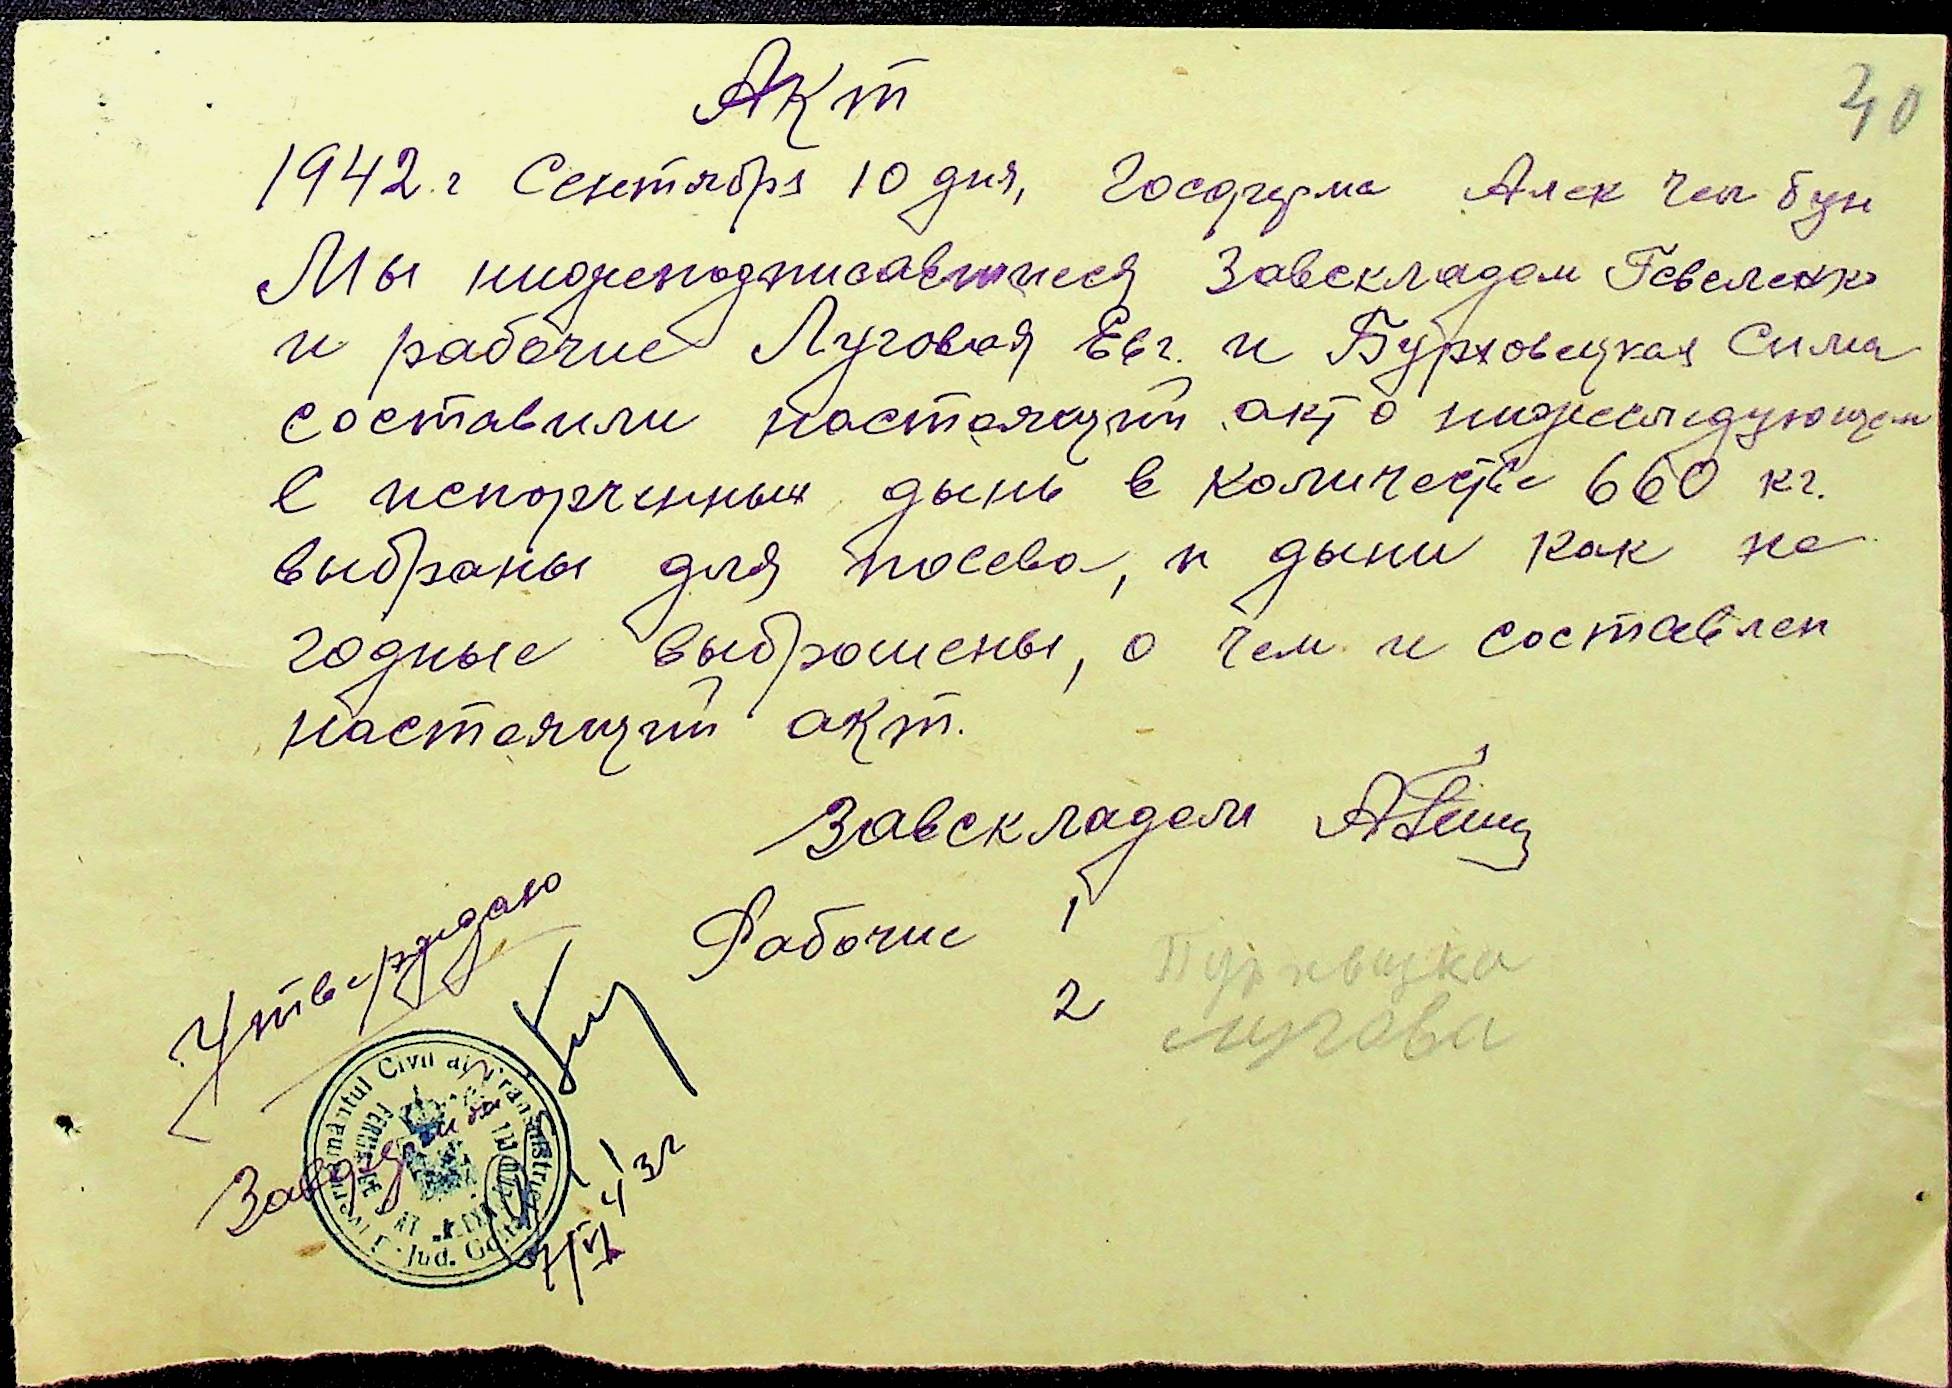 40
Акт
1942 г Сентября 10 дня, Госферма Алек чел бун
Мы нижеподписавшиеся Завскладом
и рабочие Луговая Евг. и Бурховецкая Сима
составили настоящий акт о нижеследующем
С испорченных дынь в количестве 660 кг.
выбраны для посева, и дыни как не
годные выброшены, о чем и составлен
настоящий акт.
Завскладом
Рабочие 1
2 лугова
Утверждаю
Guvernământul Civil al Transnistriei
Jud.
43 г